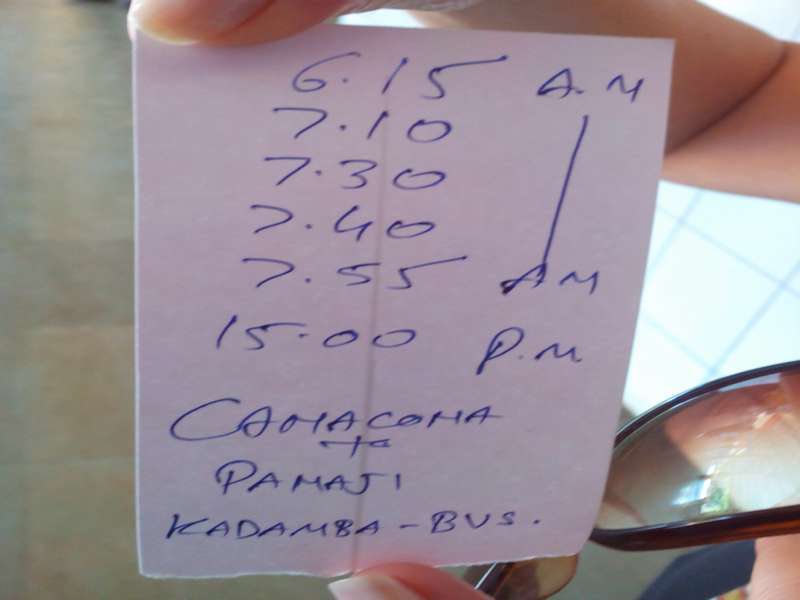 6.15 A.M
7.10
7.30
7.40
7.55 AM
15.00 P.M
CANACONA
to
PANAJI
KADAMBA - BUS.